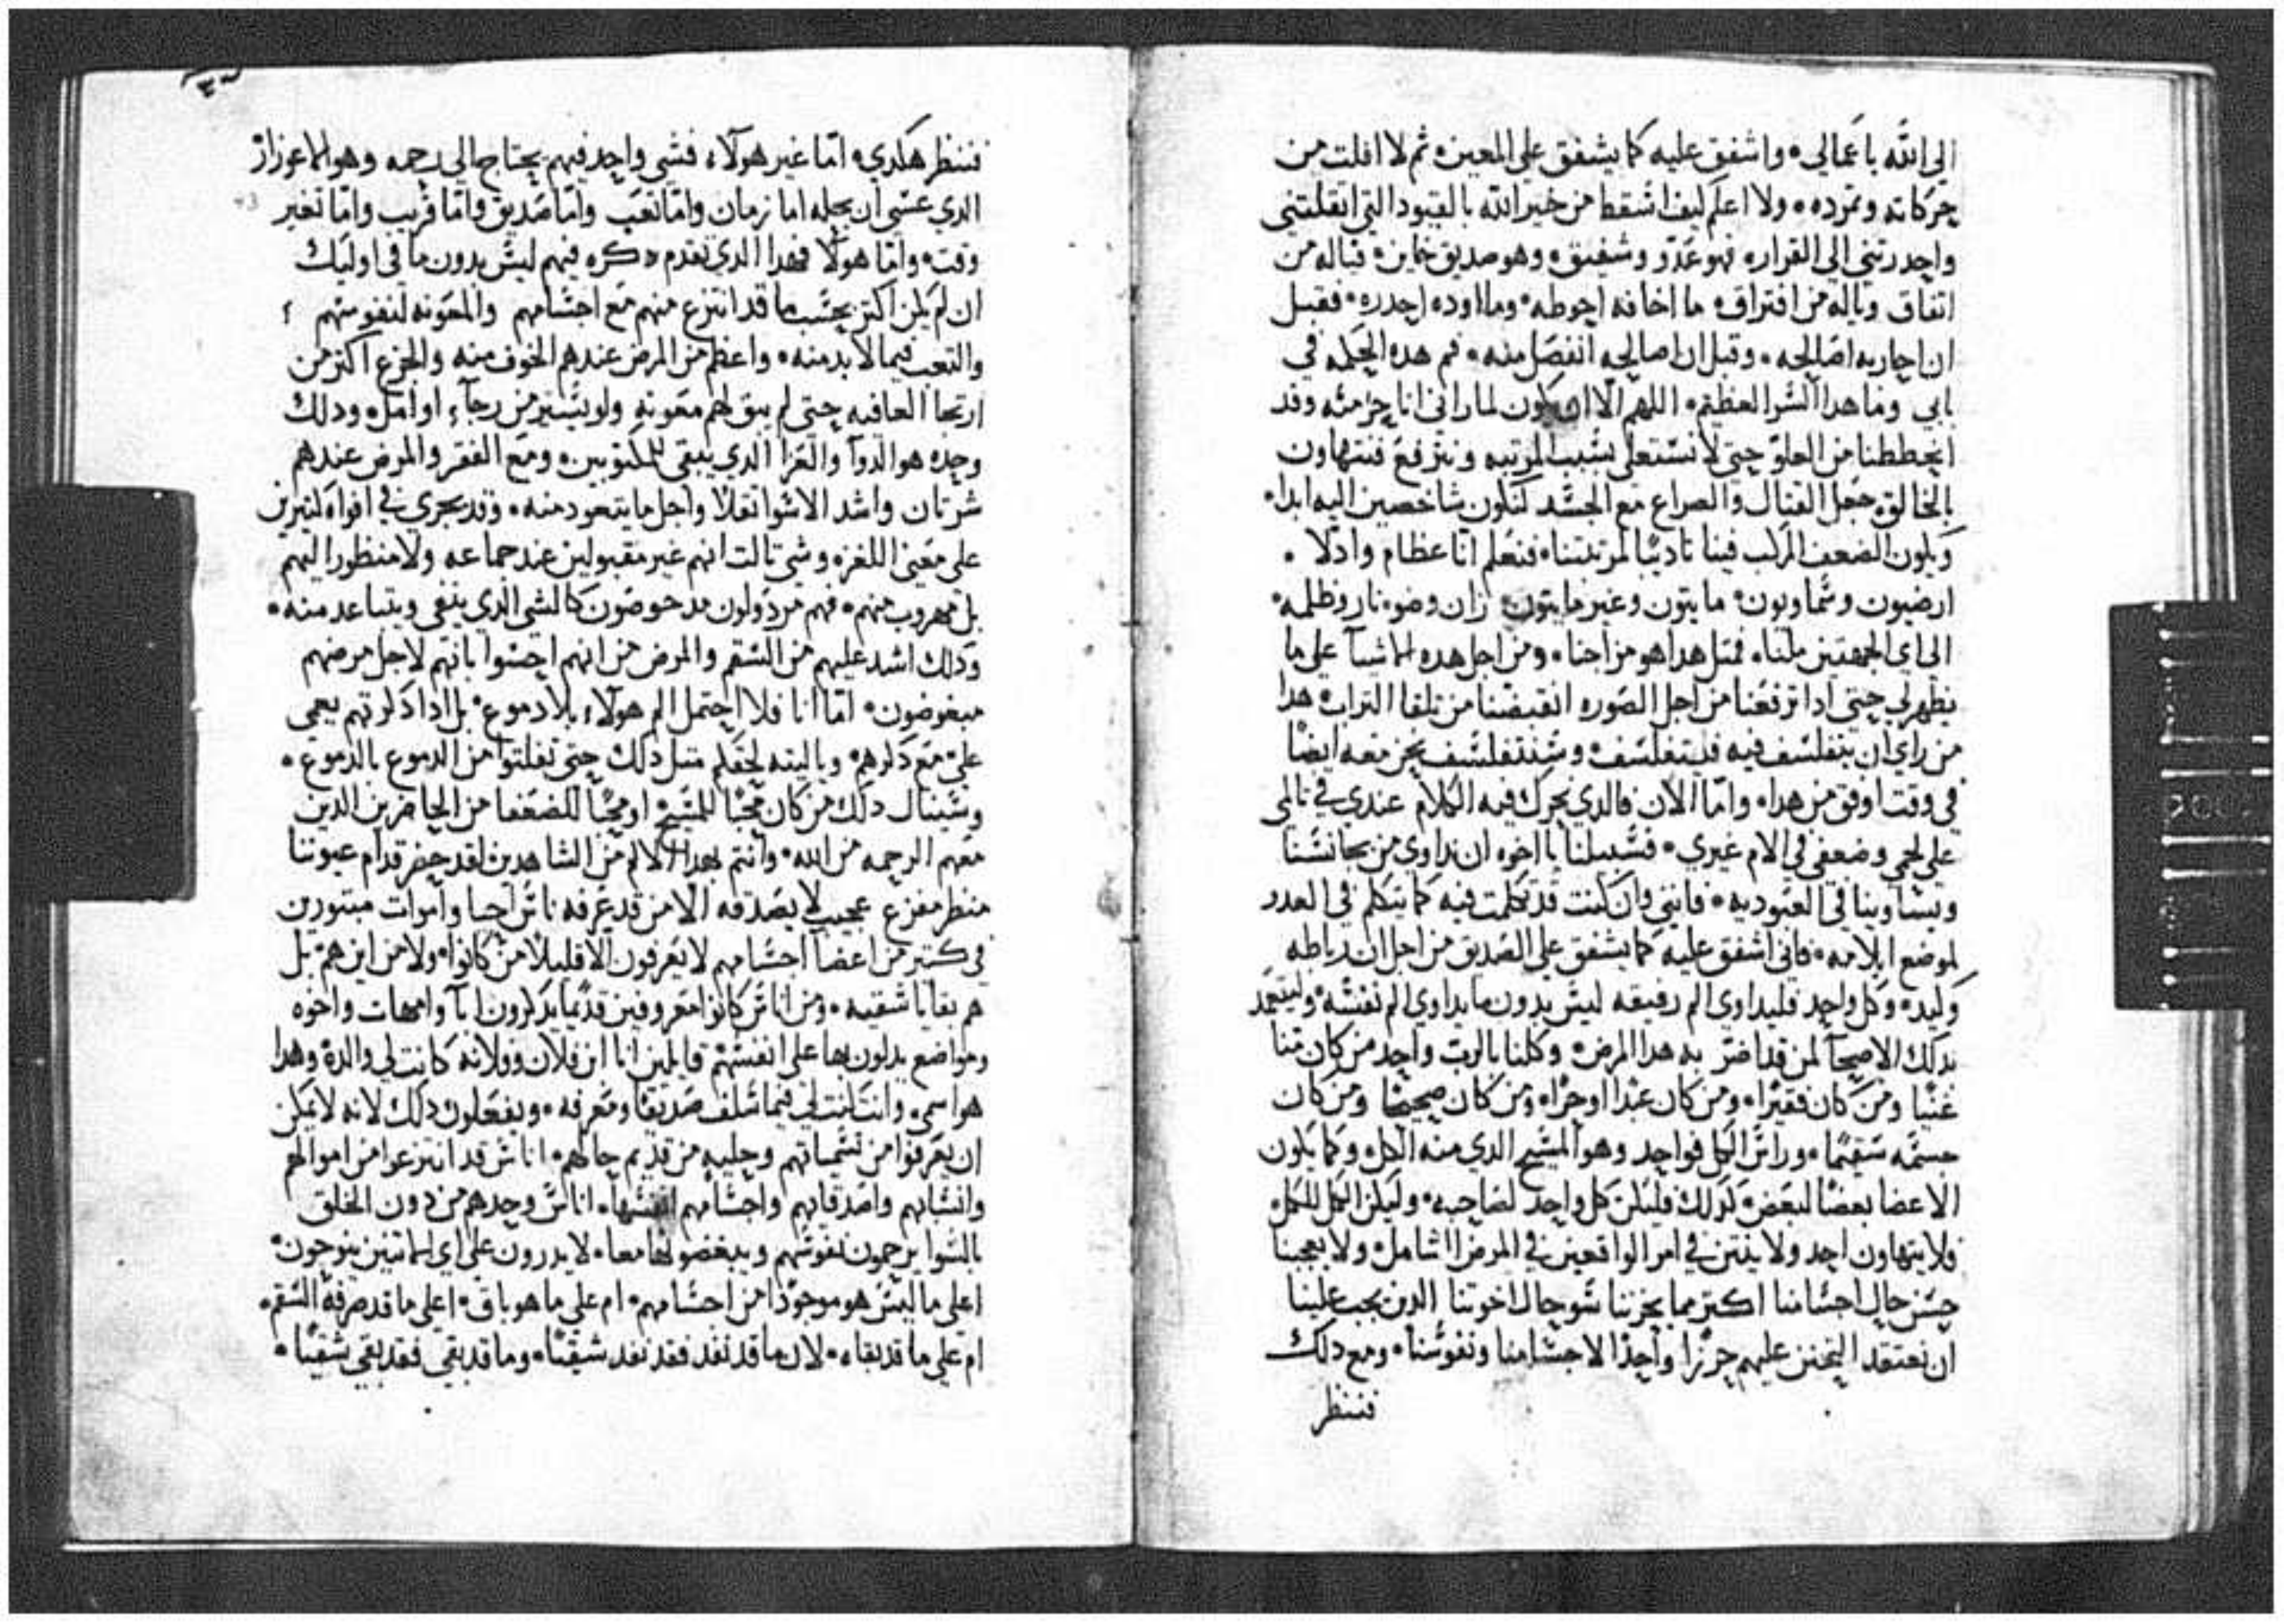 الى الله باعمالي • واشفق عليه كما يشفق على المعين • ثم لا افلت من
حركاته وتمرده • ولا اعلم كيف اسقط من خير الله بالقيود التي اتقلتني
واحدرتني الى القرار • فهو عدو وشفيق • وهو صديق خاين • فياله من
اتفاق وياله من افتراق • ما اخافه احوطه • وما اوده احدره • فقبل
ان احاربه اصالحه • وقبل ان اصالحه انفصل منه • فم هده الحكمه في
بابي وما هدا السر العظيم • اللهم الا ان يكون لما راني انا جز منه وقد
انحططنا من العلو حتى لا نستعلى بسبب المرتبه ونترفع فنتهاون
بالخالق • جعل القتال والصراع مع الجسد لنكون شاخصين اليه ابدا •
ويكون الضعف المركب فينا تاديبا لمرتبتنا • فنعلم انا عظام وادلا •
ارضيون وسماويون • مايتون وغير مايتون • ران وضو • نار وظلمه •
الى اى الجهتين ملنا • فمتل هدا هو مزاجنا • ومن اجل هده الاشيآ على ما
يظهر لي حتى ادا ترفعنا من اجل الصوره انقبضنا من تلقا التراب • هدا
من راى ان يتفلسف فيه فليتفلسف • وسنتفلسف نحن معه ايضا
في وقت اوفق من هدا • واما الان فالدي يحرك فيه الكلام عندي في تالمى
على لحمي وضعفي في الام غيري • فسبيلنا يا اخوه ان نداوي من يجانسنا
ويساوينا في العبوديه • فانني وان كنت قد تكلمت فيه كما يتكلم في العدو
لموضع ايلامه • فاني اشفق عليه كما يشفق على الصديق من اجل ان رباطه
وليد • وكل واحد فليداوى الم رفيقه ليس بدون ما يداوي الم نفسه • وليتعمد
بدلك الاصحآ لمن قد اضر به هدا المرض • وكلنا بالرب واحد من كان منا
غنيا ومن كان فقيرا • ومن كان عبدا او حرا • ومن كان صحيحا ومن كان
جسمه سقيما • وراس الكل فواحد وهو المسيح الدي منه الكل • وكما يكون
الاعضا بعضا لبعض كدلك فليكن كل واحد لصاحبه • وليكن الكل للكل •
فلا يتهاون احد ولا ينتن في امر الواقعين في المرض الشامل • ولا يعجبنا
حسن حال اجسامنا اكتر مما يحزننا سو حال اخوتنا الدين يجب علينا
ان نعتقد التحنن عليهم حرزا واحدا لاجسامنا ونفوسنا • ومع دلك
فننظر
فننظر هكدي • اما غير هولآء فشي واحد فيهم يحتاج الى رحمه وهو الاعوزاز
الدي عسى ان يحله اما زمان واما تعب واما صديق واما قريب واما تغير
وقت • واما هولا فهدا الدي تقدم دكره فيهم ليس بدون ما في اوليك
ان لم يكن اكتر بحسب ما قد انتزع منهم مع اجسامهم والمعونه لنفوسهم
والتعب فيما لابد منه • واعظم من المرض عندهم الخوف منه والجزع اكتر من
ارتجا العافيه حتى لم يبق لهم معونه ولو يسير من رجآء او امل • ودلك
وحده هو الدوآ والعزا الدي يبقى للمكتوبين • ومع الفقر والمرض عندهم
شر تان واشد الاسوا تقلا واجل ما يتعود منه • وقد يجري في افواه كتيرين
على معنى اللغزه وشي تالت انهم غير مقبولين عند جماعه ولا منظور اليهم
بل مهروب منهم • فهم مردولون مدحوضون كالشي الدي ينفى ويتباعد منه •
ودلك اشد عليهم من السقم والمرض من انهم احسوا بانهم لاجل مرضهم
مبغوضون • اما انا فلا احتمل الم هولآء بلا دموع • بل ادا دكرتهم يعمى
على مع دكرهم • وياليته لحقكم متل دلك حتى تفلتوا من الدموع بالدموع •
وسينال دلك من كان محبا للمسيح او محبا للضعفا من الحاضرين الدين
معهم الرحمه من الله • وانتم بهدا الالم من الشاهدين لقد حضر قدام عيوننا
منظر مفزع عجيب لا يصدقه الا من قد عرفه ناس احيا واموات مبتورين
في كتير من اعضآ اجسامهم لا يعرفون الا قليلا من كانوا • ولا من اين هم • بل
هم بقايا شقيه • ومن اناس كانوا معروفين قديما يدكرون ابآ وامهات واخوه
ومواضع يدلون بها على انفسهم قايلين انا ابن فلان وفلانه كانت لي والدة وهدا
هو اسمى • وانت كنت لي فيما سلف صديقا ومعرفه • ويفعلون دلك لانه لا يمكن
ان يعرفوا من تسمياتهم وحليه من قديم حالهم • اناس قد انتزعوا من اموالهم
وانسابهم واصدقايهم واجسامهم انفسها • اناس وحدهم من دون الخلق
بالسوا يرحمون نفوسهم ويبغضونها معا • لا يدرون على اى الماتين ينوحون •
اعلى ما ليس هو موجودا من اجسامهم • ام على ما هو باق • اعلى ما قد صرفه السقم •
ام على ما قد بقاه • لان ما قد نفد فقد نفد شقيا • وما قد بقي فقد بقي شقيا •